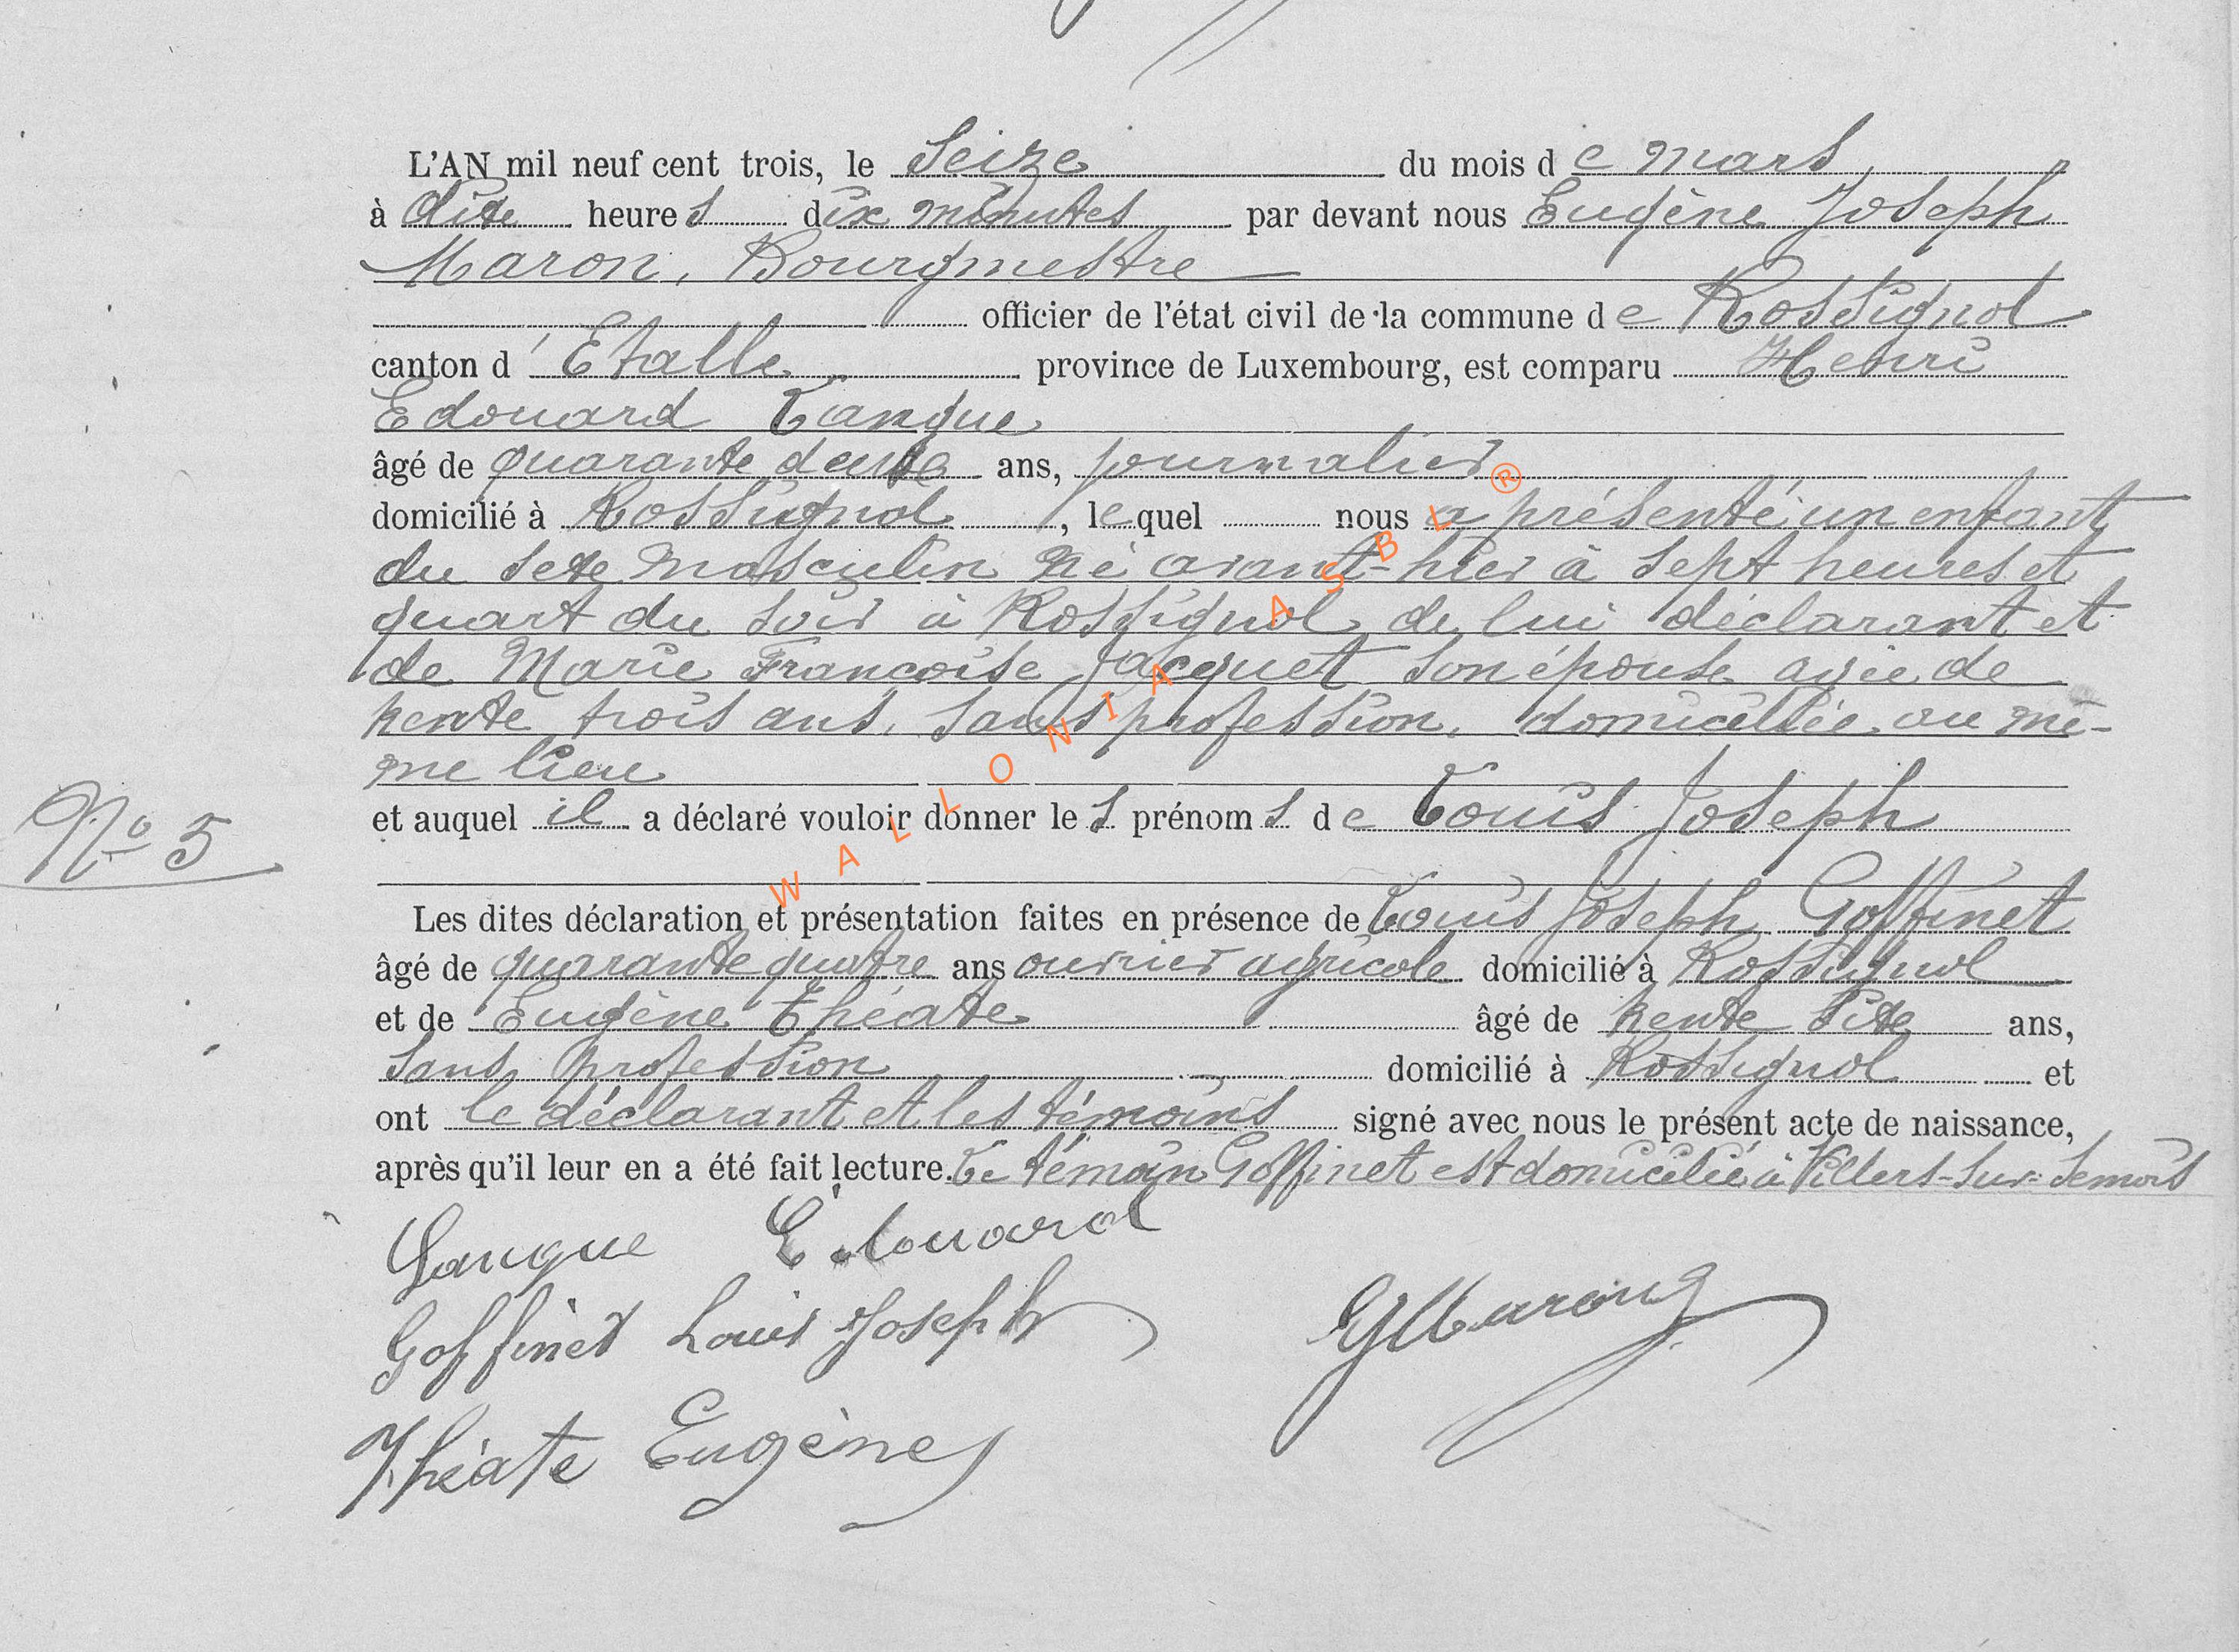 L'AN mil neuf cent trois, le Seize du mois de mars
à dix heures dix minutes par devant nous Eugène Joseph
Maron, Bourgmestre
officier de l'état civil de la commune de Rossignol
canton d'Etalle province de Luxembourg, est comparu Henri
Edouard Langue
âgé de quarante deux ans, journalier
domicilié à Rossignol, lequel nous a présenté un enfant
du sexe masculin né avant-hier à sept heures et
quart du soir à Rossignol de lui déclarant et
de Marie Françoise Jacquet son épouse agée de
trente trois ans, sans profession, domiciliée au mê-
me lieu
N° 5
et auquel il a déclaré vouloir donner les prénoms de Louis Joseph
Les dites déclaration et présentation faites en présence de Louis Joseph Goffinet
âgé de quarante quatre ans ouvrier agricole domicilié à Rossignol
et de Eugène Théate âgé de trente six ans,
sans profession domicilié à Rossignol et
ont le déclarant et les témoins signé avec nous le présent acte de naissance,
après qu'il leur en a été fait lecture. Le témoin Goffinet est domicilié à Villers-sur-Semois
Langue Edouard
Goffinet Louis Joseph
EMaron
Théate Eugène
WALLONIA ASBL ®